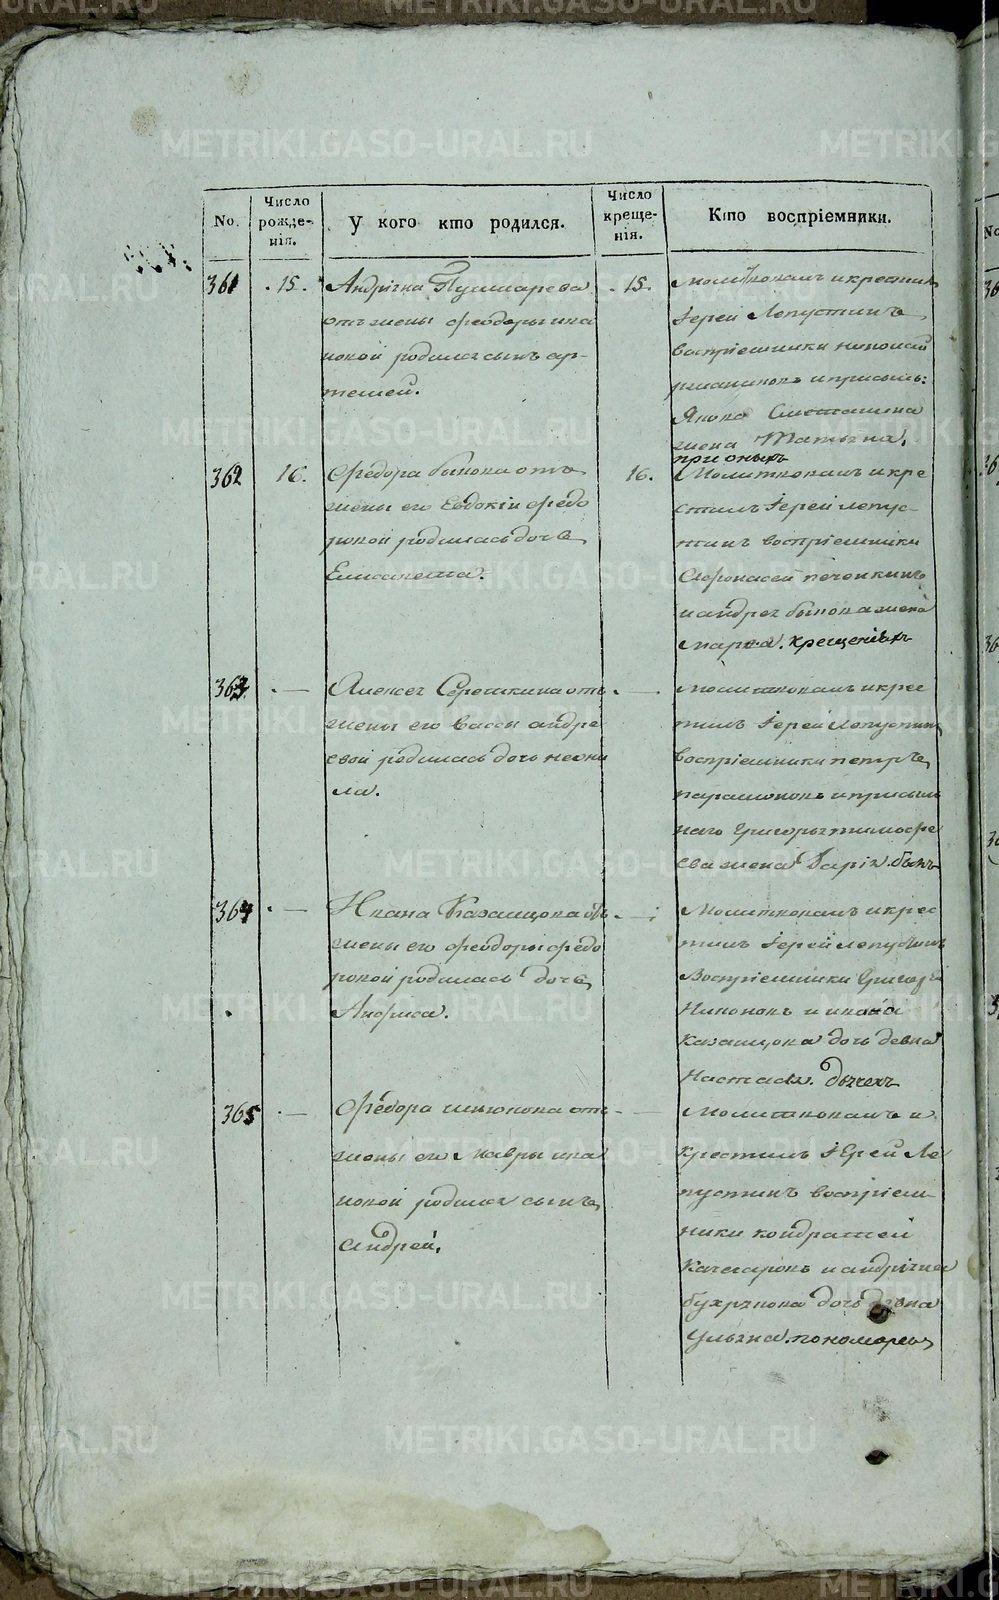 No.
Число рожде-нія.
У кого кто родился.
Число креще-нія.
Кто воспріемники.
361
15.
Андрѣяна
отъ жены феодоры ива
новой родился сынъ ар-
темей.
15.
молитвовалъ и крестилъ
Іерей Лепустинъ
воспріемники николай
Якова
жена Татьяна,
при оныхъ
362
16.
Федора быкова отъ
жены его Евдокіи федо
ровой родилась дочь
Елисавета.
16.
Молитвовалъ и кре
стилъ Іерей лепус-
тинъ воспріемники
Афонасей печенкинъ
и андрея быкова жена
марѳа. крещеніяхъ
363
Алексея Серешкина отъ
жены его вассы андре
евой родилась дочь неони
ла.
молитвовалъ и крес
тилъ Іерей Лепустинъ
воспріемники петръ
парамоновъ и присыль
наго Григорья тимофе
ева жена Дарія. былъ
364
Ивана Казанцова отъ
жены его феодоры федо
ровой родилась дочь
Анфиса.
Молитвовалъ и крес
тилъ Іерей лепустинъ
Воспріемники Григорій
Никоновъ и ивана
казанцова дочь девка
Настасья. дьячекъ
365
Федора шеюнова отъ
жены его Мавры ива
новой родился сынъ
андрей.
Молитвовалъ и
крестилъ Іерей Ле
пустинъ воспріем-
ники кондратей
Качегаровъ и андрѣяна
бухрякова дочь девка
Ульяна. пономарь
METRIKI.GASO-URAL.RU